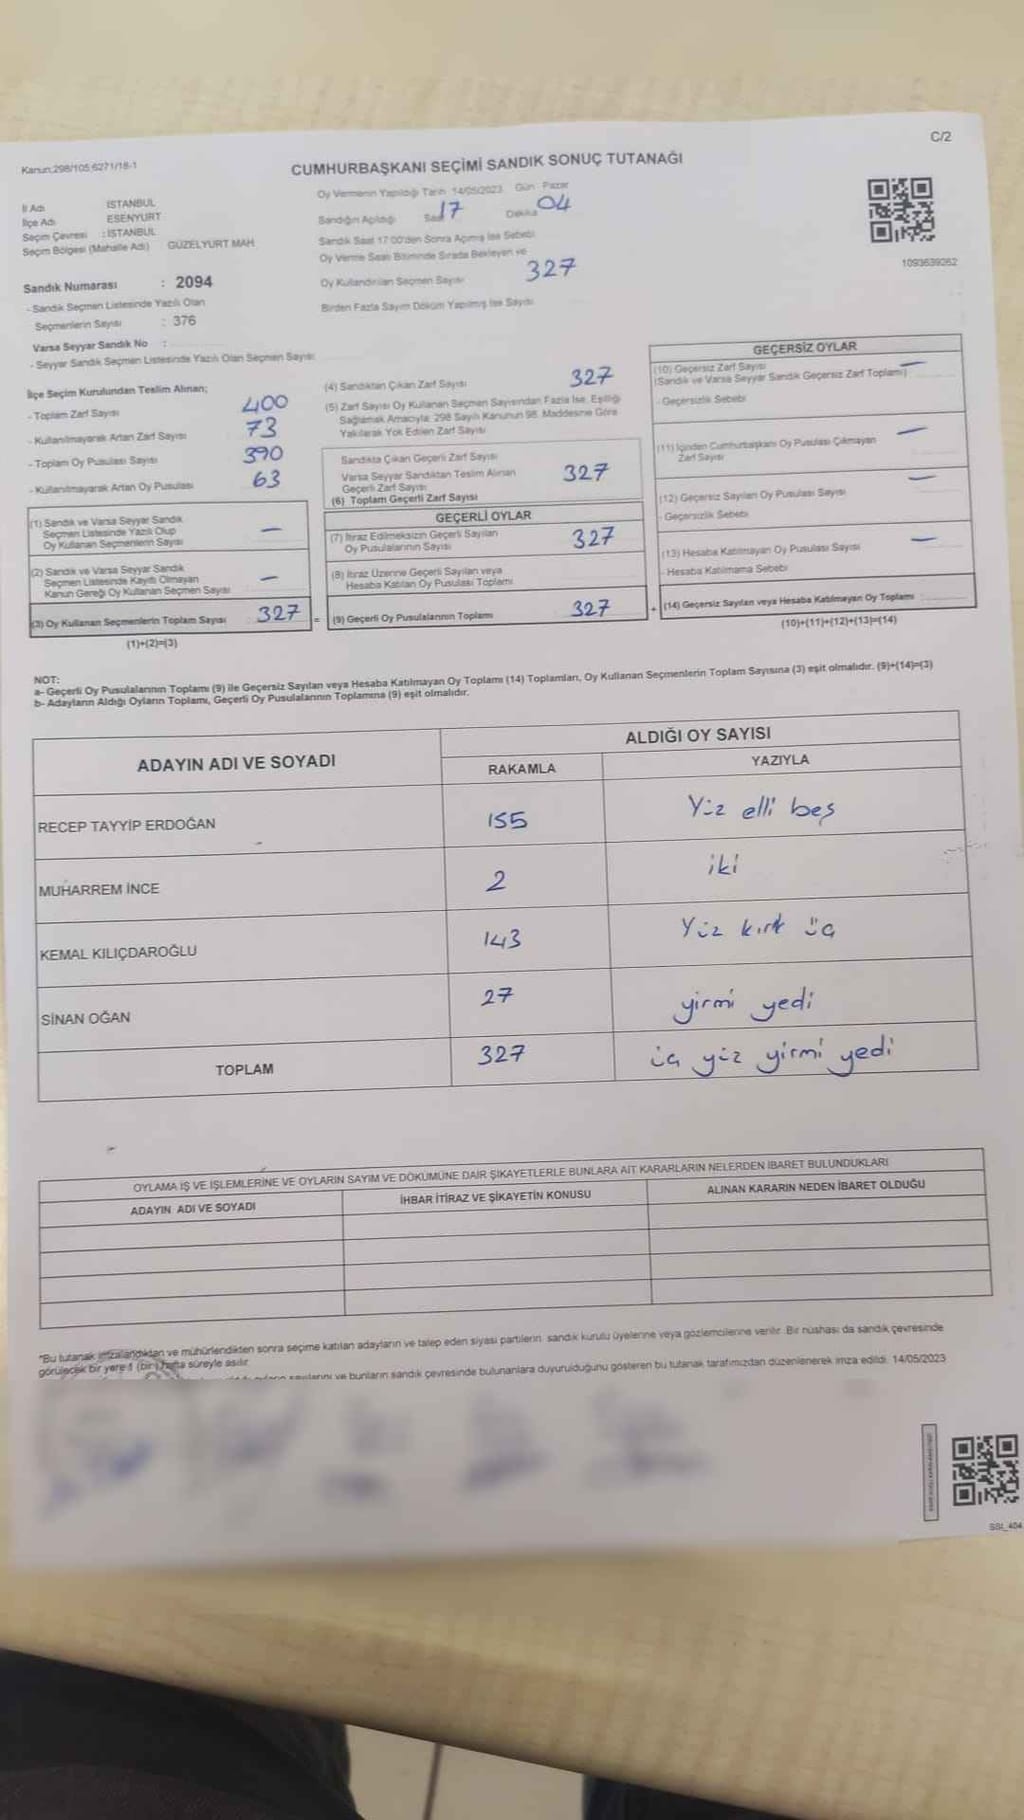 C/2
Kanun:298/105;6271/18-1
CUMHURBAŞKANI SEÇİMİ SANDIK SONUÇ TUTANAĞI
İl Adı : İSTANBUL
İlçe Adı : ESENYURT
Seçim Çevresi : İSTANBUL
Seçim Bölgesi (Mahalle Adı) GÜZELYURT MAH.
Oy Vermenin Yapıldığı Tarih: 14/05/2023 Gün: Pazar
Sandığın Açıldığı Saat 17 Dakika 04
Sandık Saat 17:00'den Sonra Açılmış İse Sebebi
Oy Verme Saati Bitiminde Sırada Bekleyen ve
Oy Kullandırılan Seçmen Sayısı 327
Birden Fazla Sayım Döküm Yapılmış İse Sayısı
1093639262
Sandık Numarası : 2094
- Sandık Seçmen Listesinde Yazılı Olan
Seçmenlerin Sayısı : 376
Varsa Seyyar Sandık No :
- Seyyar Sandık Seçmen Listesinde Yazılı Olan Seçmen Sayısı:
İlçe Seçim Kurulundan Teslim Alınan;
- Toplam Zarf Sayısı 400
- Kullanılmayarak Artan Zarf Sayısı 73
- Toplam Oy Pusulası Sayısı 390
- Kullanılmayarak Artan Oy Pusulası 63
(1) Sandık ve Varsa Seyyar Sandık
Seçmen Listesinde Yazılı Olup
Oy Kullanan Seçmenlerin Sayısı —
(2) Sandık ve Varsa Seyyar Sandık
Seçmen Listesinde Kayıtlı Olmayan
Kanun Gereği Oy Kullanan Seçmen Sayısı —
(3) Oy Kullanan Seçmenlerin Toplam Sayısı 327 =
(1)+(2)=(3)
(4) Sandıktan Çıkan Zarf Sayısı 327
(5) Zarf Sayısı Oy Kullanan Seçmen Sayısından Fazla İse, Eşitliği
Sağlamak Amacıyla; 298 Sayılı Kanunun 98. Maddesine Göre
Yakılarak Yok Edilen Zarf Sayısı
Sandıkta Çıkan Geçerli Zarf Sayısı
Varsa Seyyar Sandıktan Teslim Alınan
Geçerli Zarf Sayısı
(6) Toplam Geçerli Zarf Sayısı 327
GEÇERLİ OYLAR
(7) İtiraz Edilmeksizin Geçerli Sayılan
Oy Pusulalarının Sayısı 327
(8) İtiraz Üzerine Geçerli Sayılan veya
Hesaba Katılan Oy Pusulası Toplamı
(9) Geçerli Oy Pusulalarının Toplamı 327 +
GEÇERSİZ OYLAR
(10) Geçersiz Zarf Sayısı —
(Sandık ve Varsa Seyyar Sandık Geçersiz Zarf Toplamı)
- Geçersizlik Sebebi
(11) İçinden Cumhurbaşkanı Oy Pusulası Çıkmayan
Zarf Sayısı —
(12) Geçersiz Sayılan Oy Pusulası Sayısı —
- Geçersizlik Sebebi
(13) Hesaba Katılmayan Oy Pusulası Sayısı —
- Hesaba Katılmama Sebebi
(14) Geçersiz Sayılan veya Hesaba Katılmayan Oy Toplamı
(10)+(11)+(12)+(13)=(14)
NOT:
a- Geçerli Oy Pusulalarının Toplamı (9) ile Geçersiz Sayılan veya Hesaba Katılmayan Oy Toplamı (14) Toplamları, Oy Kullanan Seçmenlerin Toplam Sayısına (3) eşit olmalıdır. (9)+(14)=(3)
b- Adayların Aldığı Oyların Toplamı, Geçerli Oy Pusulalarının Toplamına (9) eşit olmalıdır.
ADAYIN ADI VE SOYADI ALDIĞI OY SAYISI
RAKAMLA YAZIYLA
RECEP TAYYİP ERDOĞAN 155 Yüz elli beş
MUHARREM İNCE 2 iki
KEMAL KILIÇDAROĞLU 143 Yüz kırk üç
SİNAN OĞAN 27 yirmi yedi
TOPLAM 327 üç yüz yirmi yedi
OYLAMA İŞ VE İŞLEMLERİNE VE OYLARIN SAYIM VE DÖKÜMÜNE DAİR ŞİKAYETLERLE BUNLARA AİT KARARLARIN NELERDEN İBARET BULUNDUKLARI
ADAYIN ADI VE SOYADI İHBAR İTİRAZ VE ŞİKAYETİN KONUSU ALINAN KARARIN NEDEN İBARET OLDUĞU
"Bu tutanak imzalandıktan ve mühürlendikten sonra seçime katılan adayların ve talep eden siyasi partilerin sandık kurulu üyelerine veya gözlemcilerine verilir. Bir nüshası da sandık çevresinde
görülecek bir yere 1 (bir) hafta süreyle asılır.
ve bunların sandık çevresinde bulunanlara duyurulduğunu gösteren bu tutanak tarafımızdan düzenlenerek imza edildi. 14/05/2023
SSI_404